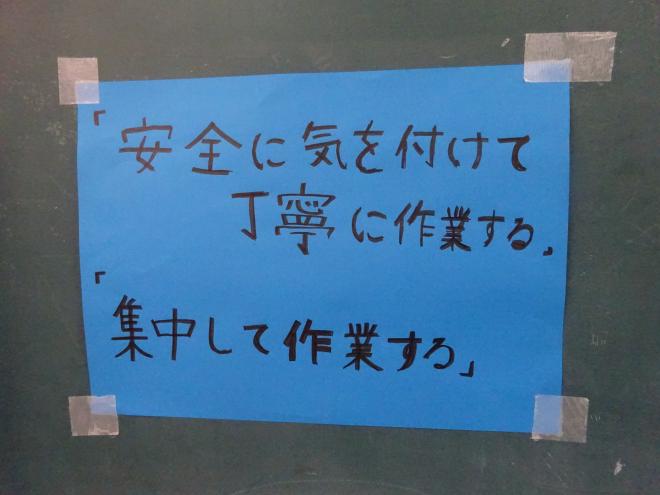 「安全に気を付けて
丁寧に作業する」
「集中して作業する」